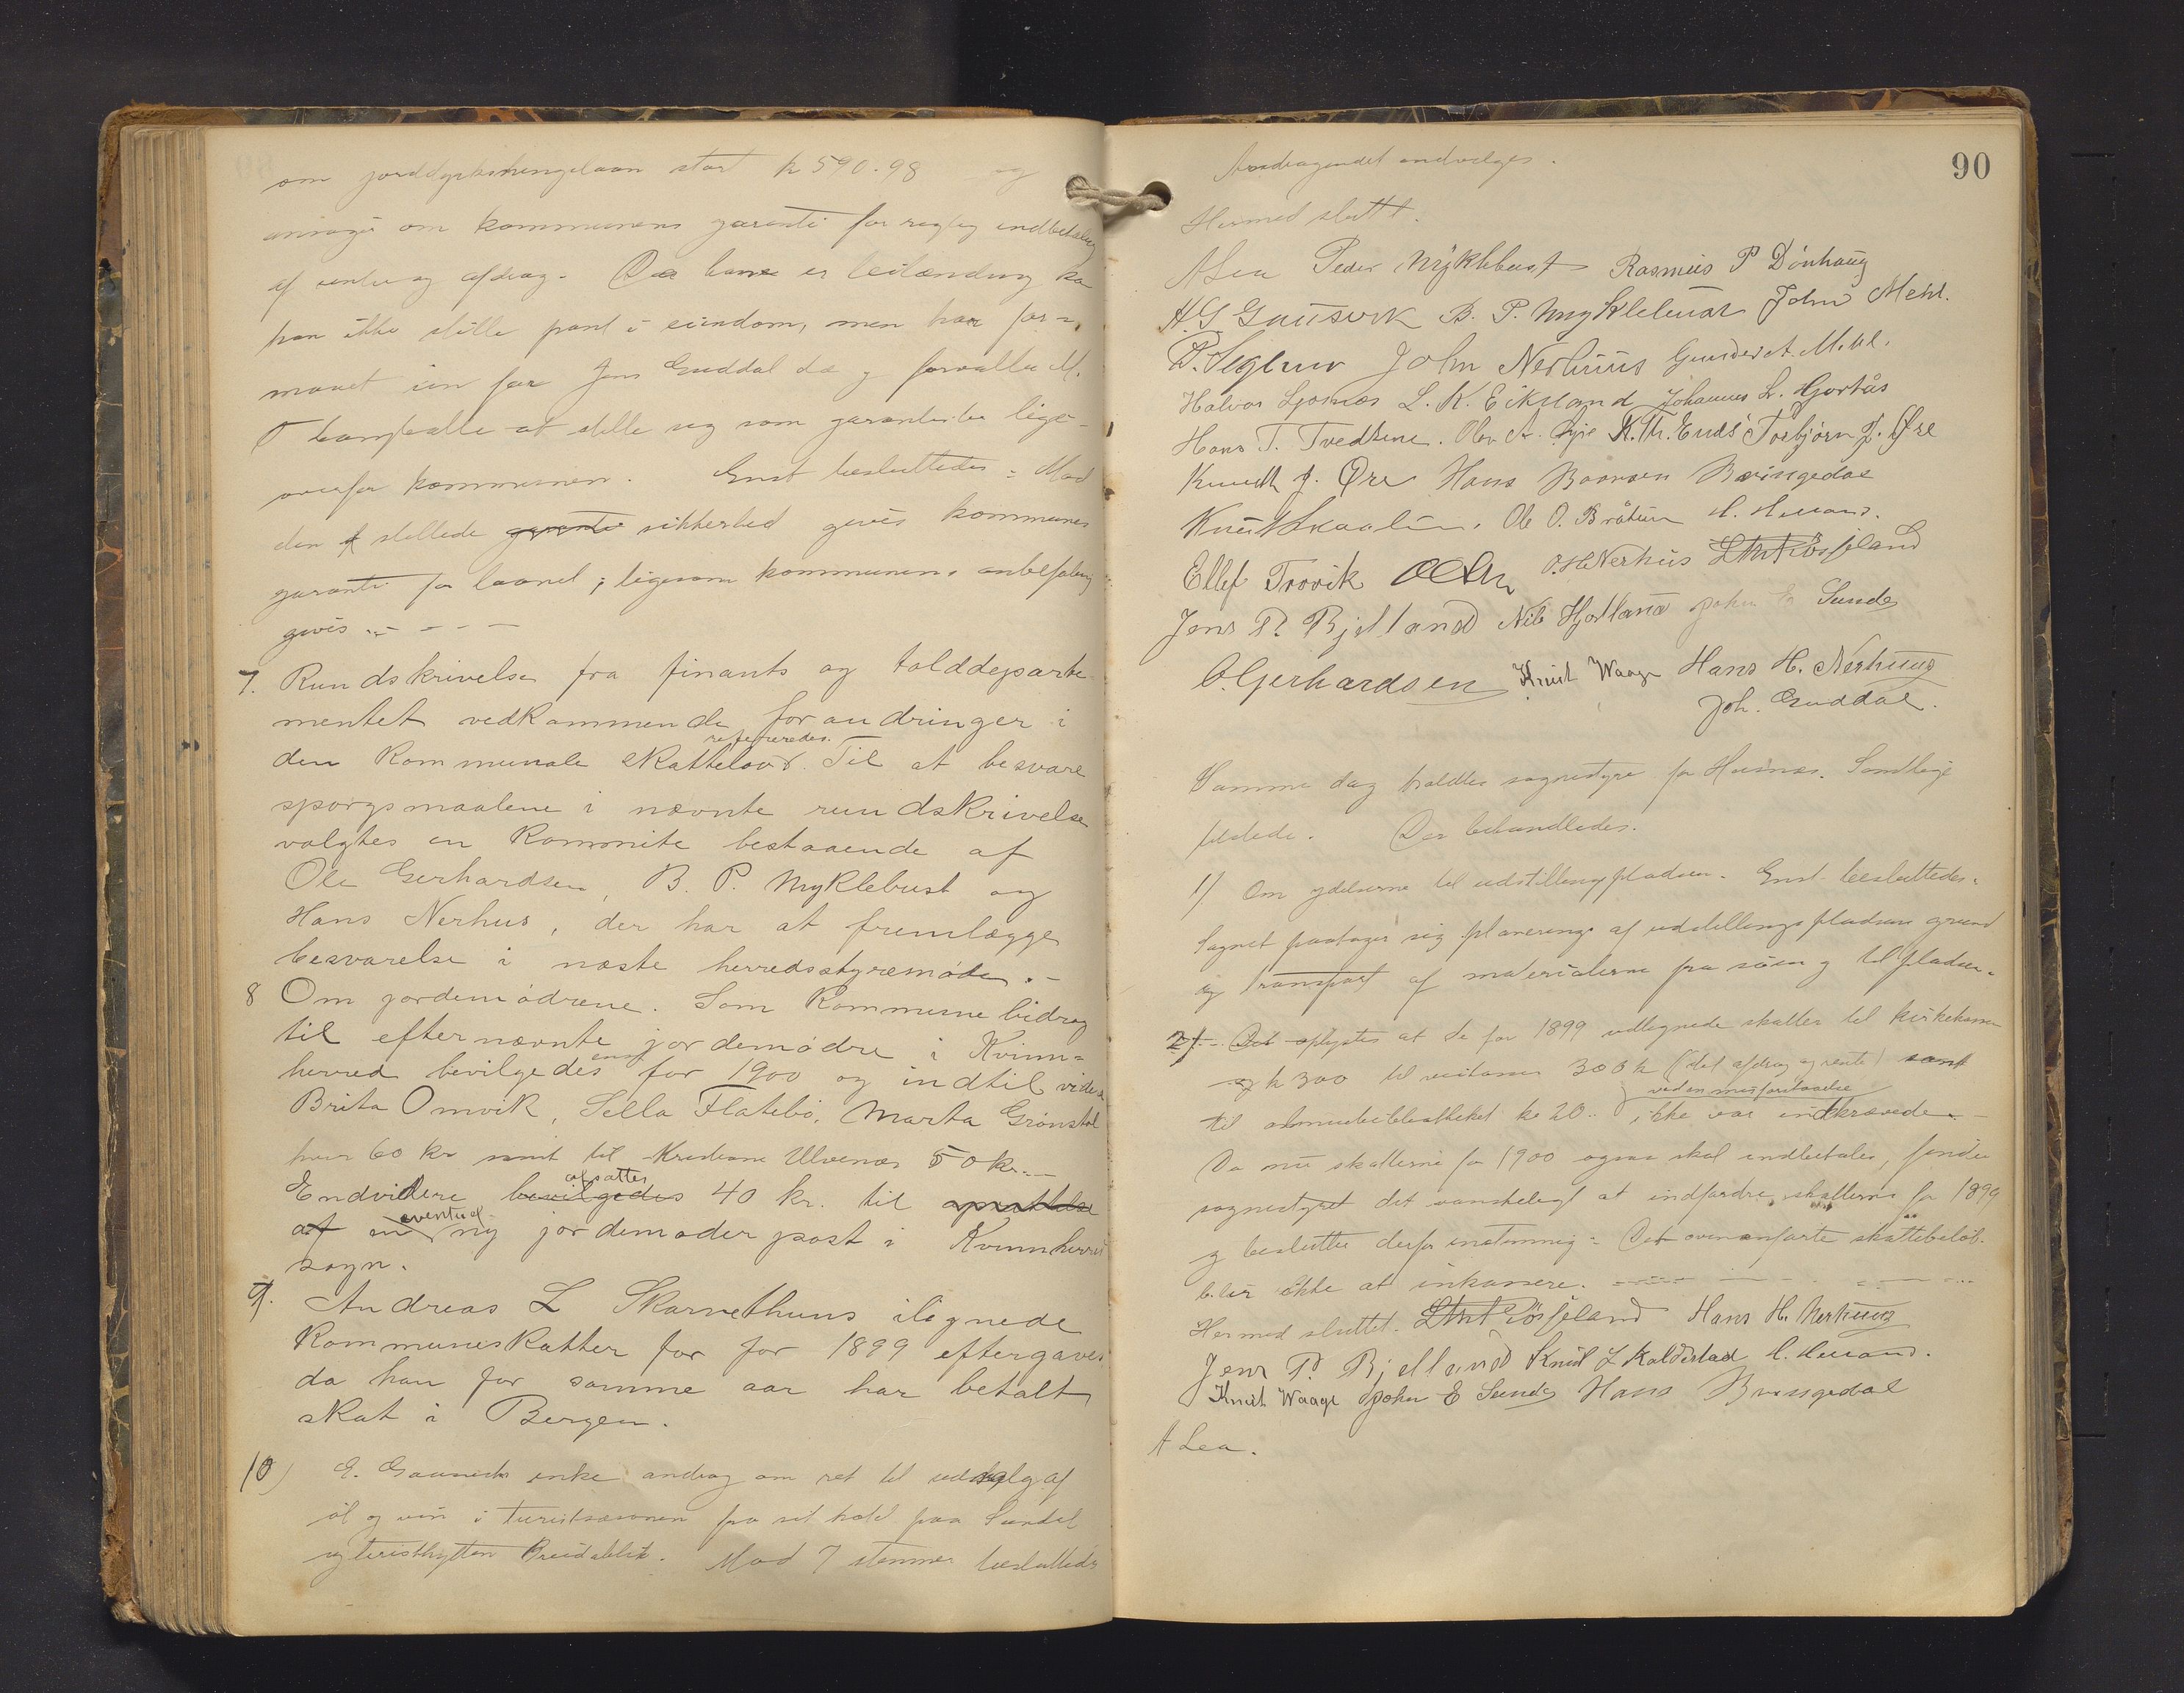 om jorddyrkningslaan stort kr 590.98 og
ansøger om kommunens garanti for rigtig indbetaling
af renter og afdrag. Da han er leilænding kan
han ikke stille pant i eiendom, men har for-
maaet Jens Guddal og forvalter
at stille sig som garantister lige-
overfor kommunen. Enst. besluttedes: Mod
den stillede garanti sikkerhed gives kommunens
garanti for laanet; ligesom kommunens anbefaling
gives
7. Rundskrivelse fra finants og tolddeparte-
mentet vedkommende forandringer i
den kommunale skattelov refereredes. Til at besvare
spørgsmaalene i nævnte rundskrivelse
valgtes en kommite bestaaende af
Ole Gerhardsen, B. P. Myklebust og
Hans Nerhus, der har at fremlægge
besvarelse i næste herredsstyremøde.
8 Om jordemødrene. Som kommunebidrag
til efternævnte jordemødre i Kvinn-
herred bevilgedes enst for 1900 og indtil videre
Brita Omvik, Sella Flatebø, Marta Grønstøl
hver 60 kr samt til Kristiane Ulvenæs 50 kr.
Endvidere bevilgedes afsattes 40 kr. til oprettelse
af en eventuel ny jordemoderpost i Kvinnherred
sogn.
9. Andreas L Skarvethuns ilignede
kommuneskatter for for 1899 eftergaves
da han for samme aar har betalt
skat i Bergen.
10) G. Gaunes enke andrag om ret til udsalg af
øl og vin i turistsæsonen fra sit hotel paa Sundal
og turisthytten Breidablik. Mod 7 stemmer besluttedes
90
Andragendet indvilges.
Hermed sluttet.
A Lea Peder Myklebust Rasmus P Dönhaug
H. G. Guusvik B. P. Myklebust John Mehl.
P. Seglem John Nerhuus Gunder A. Mehl.
Halvor Ljosnæs L. K. Eikeland Johannes L. Hjortås
Hans T. Tvedtene. Olav A. Øyre K. Th. Enes Torbjørn J. Øre
Knudt J. Øre Hans Baarsen Bringedal
Knut Skaalun. Ole O. Bråtun H. Husand.
Ellef Trovik O. H. Nerhus L. Røssjeland
Jens P. Bjelland Nils Hjelland John E Sunde
O. Gerhardsen Knut Waage Hans H. Nerhuus
Joh. Guddal.
Samme dag holdtes sognestyre for Husnæs. Samtlige
tilstede. Der behandledes.
1) Om ydelserne til udstillingspladsen. Enst. besluttedes:
Sognet paatager sig planering af udstillingspladsens grund
og transport af materialerne fra søen og til pladsen.
2) Det oplystes at de for 1899 udlignede skatter til kirkekassen
og kr 300 til 300 kr (del afdrag og rente) samt
til almuebibliotheket kr 20.. ved en misforstaaelse ikke var indkrævede.
Da nu skatterne for 1900 ogsaa skal indbetales, finder
sognestyret det vanskeligt at indfordre skatterne for 1899
og beslutter derfor enstemmig: Det ovenanførte skattebeløb
blir ikke at inkassere.
Hermed sluttet. L. Røssjeland Hans H. Nerhuus
Jens P. Bjelland Knut L Kaldestad H. Husand.
Knut Waage John E Sunde Hans Bringedal
A Lea.